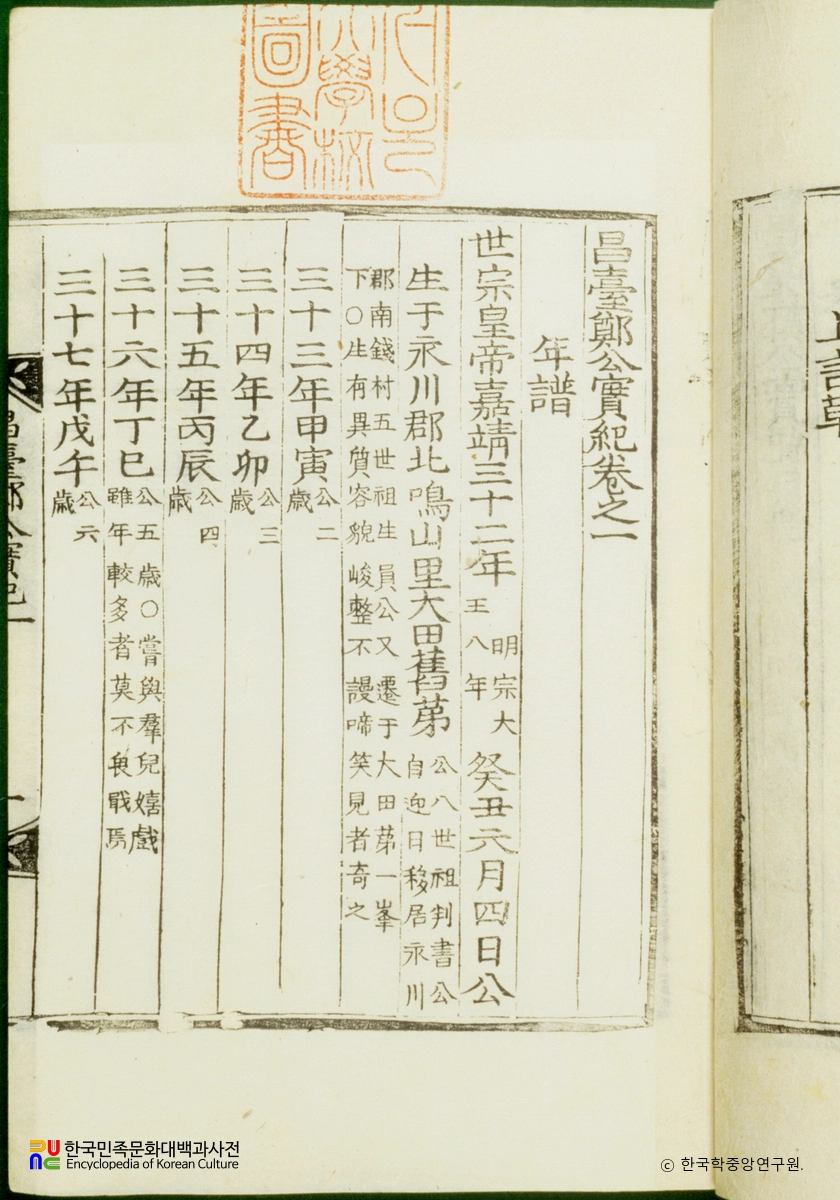 昌臺鄭公實紀卷之一
年譜
世宗皇帝嘉靖三十二年明宗大王八年癸丑元月四日公
生于永川郡北鳴山里大田舊第公八世祖判書公自迎日移居永川
郡南錢村五世祖生員公又遷于大田第一峯
下○生有異質容貌峻整不謾啼笑見者奇之
三十三年甲寅公二歲
三十四年乙卯公三歲
三十五年丙辰公四歲
三十六年丁巳公五歲○嘗與羣兒嬉戲雖年較多者莫不畏戢焉
三十七年戊午公六歲
昌臺鄭公實紀一
一
學校
圖書
한국민족문화대백과사전
Encyclopedia of Korean Culture
ⓒ 한국학중앙연구원.